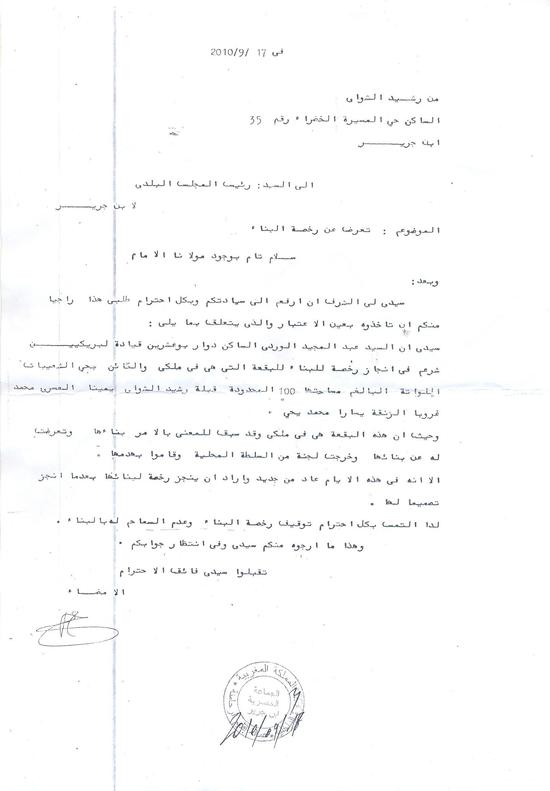 فى 17 /9/2010
من رشيد الشواى
الساكن حي المسيرة الخضراء رقم 35
ابن جريـــــر
الى السيد: رئيس المجلس البلدى
لابن جريـــــر
الموضوع : تعرضا عن رخصة البناء
سـلام تام بوجود مولانا الامام
وبعد:
سيدى لى الشرف ان ارفع الى سيادتكم وبكل احترام طلبى هذا راجيا
منكم ان تاخذوه بعين الاعتبار والذى يتعلق بما يلى :
سيدى ان السيد عبد المجيد الوردى الساكن دوار بوعشرين قيادة لبريكييـــن
شرع فى انجاز رخصة للبناء للبقعة التى هى فى ملكى والكائن بحي الشعيبات
البالغ مساحتها 100 المحدودة قبلة رشيد الشواى يمينا محمد
غروبا الزنقة يسارا محمد يحي .
وحيث ان هذه البقعة هى فى ملكى وقد سبق للمعنى بالامر بناءها وتعرضت
له عن بنائها وخرجت لجنة من السلطة المحلية وقاموا بهدمها .
الا انه فى هذه الايام عاد من جديد واراد ان ينجز رخصة لبنائها بعدما انجز
تصميما لها .
لذا التمس بكل احترام توقيف رخصة البناء وعدم السماح له بالبناء .
وهذا ما ارجوه منكم سيدى وفى انتظار جوابكم .
تقبلوا سيدى فائق الاحترام
الامضــاء
المملكة المغربية
الجماعة
الحضرية
ابن جرير